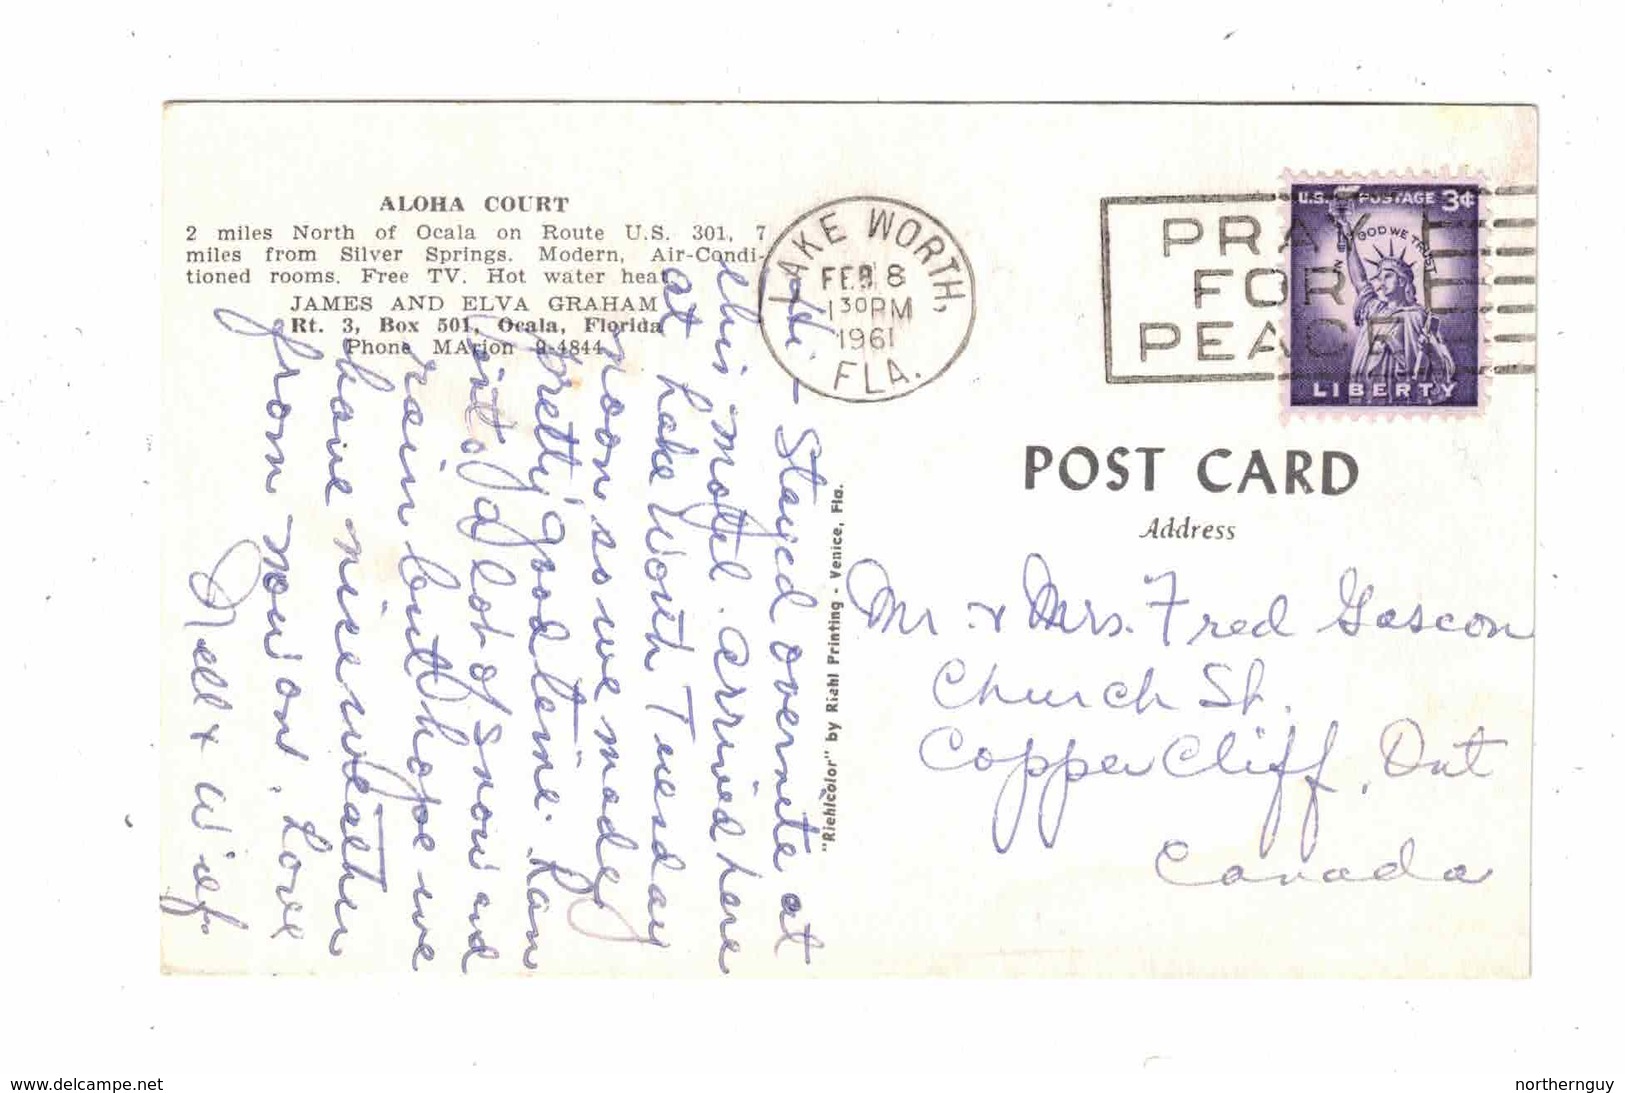 ALOHA COURT
2 miles North of Ocala on Route U.S. 301, 7
miles from Silver Springs. Modern, Air-Condi-
tioned rooms. Free TV. Hot water heat.
JAMES AND ELVA GRAHAM
Rt. 3, Box 501, Ocala, Florida
Phone MArion 9-4844
Hi - Stayed overnite at
this motel. arrived here
at Lake Worth Tuesday
noon so we made
pretty good time. Ran
into a lot of snow and
rain but hope we
have nice weather
from now on. Love
Nell & Wilf.
"Riehlcolor" by Riehl Printing - Venice, Fla.
LAKE WORTH,
FEB 8
1 30 PM
1961
FLA.
PRAY
FOR
PEACE
U.S. POSTAGE 3¢
IN GOD WE TRUST
LIBERTY
POST CARD
Address
Mr & Mrs. Fred Gascon
Church St.
Copper Cliff, Ont
Canada
www.delcampe.net
northernguy